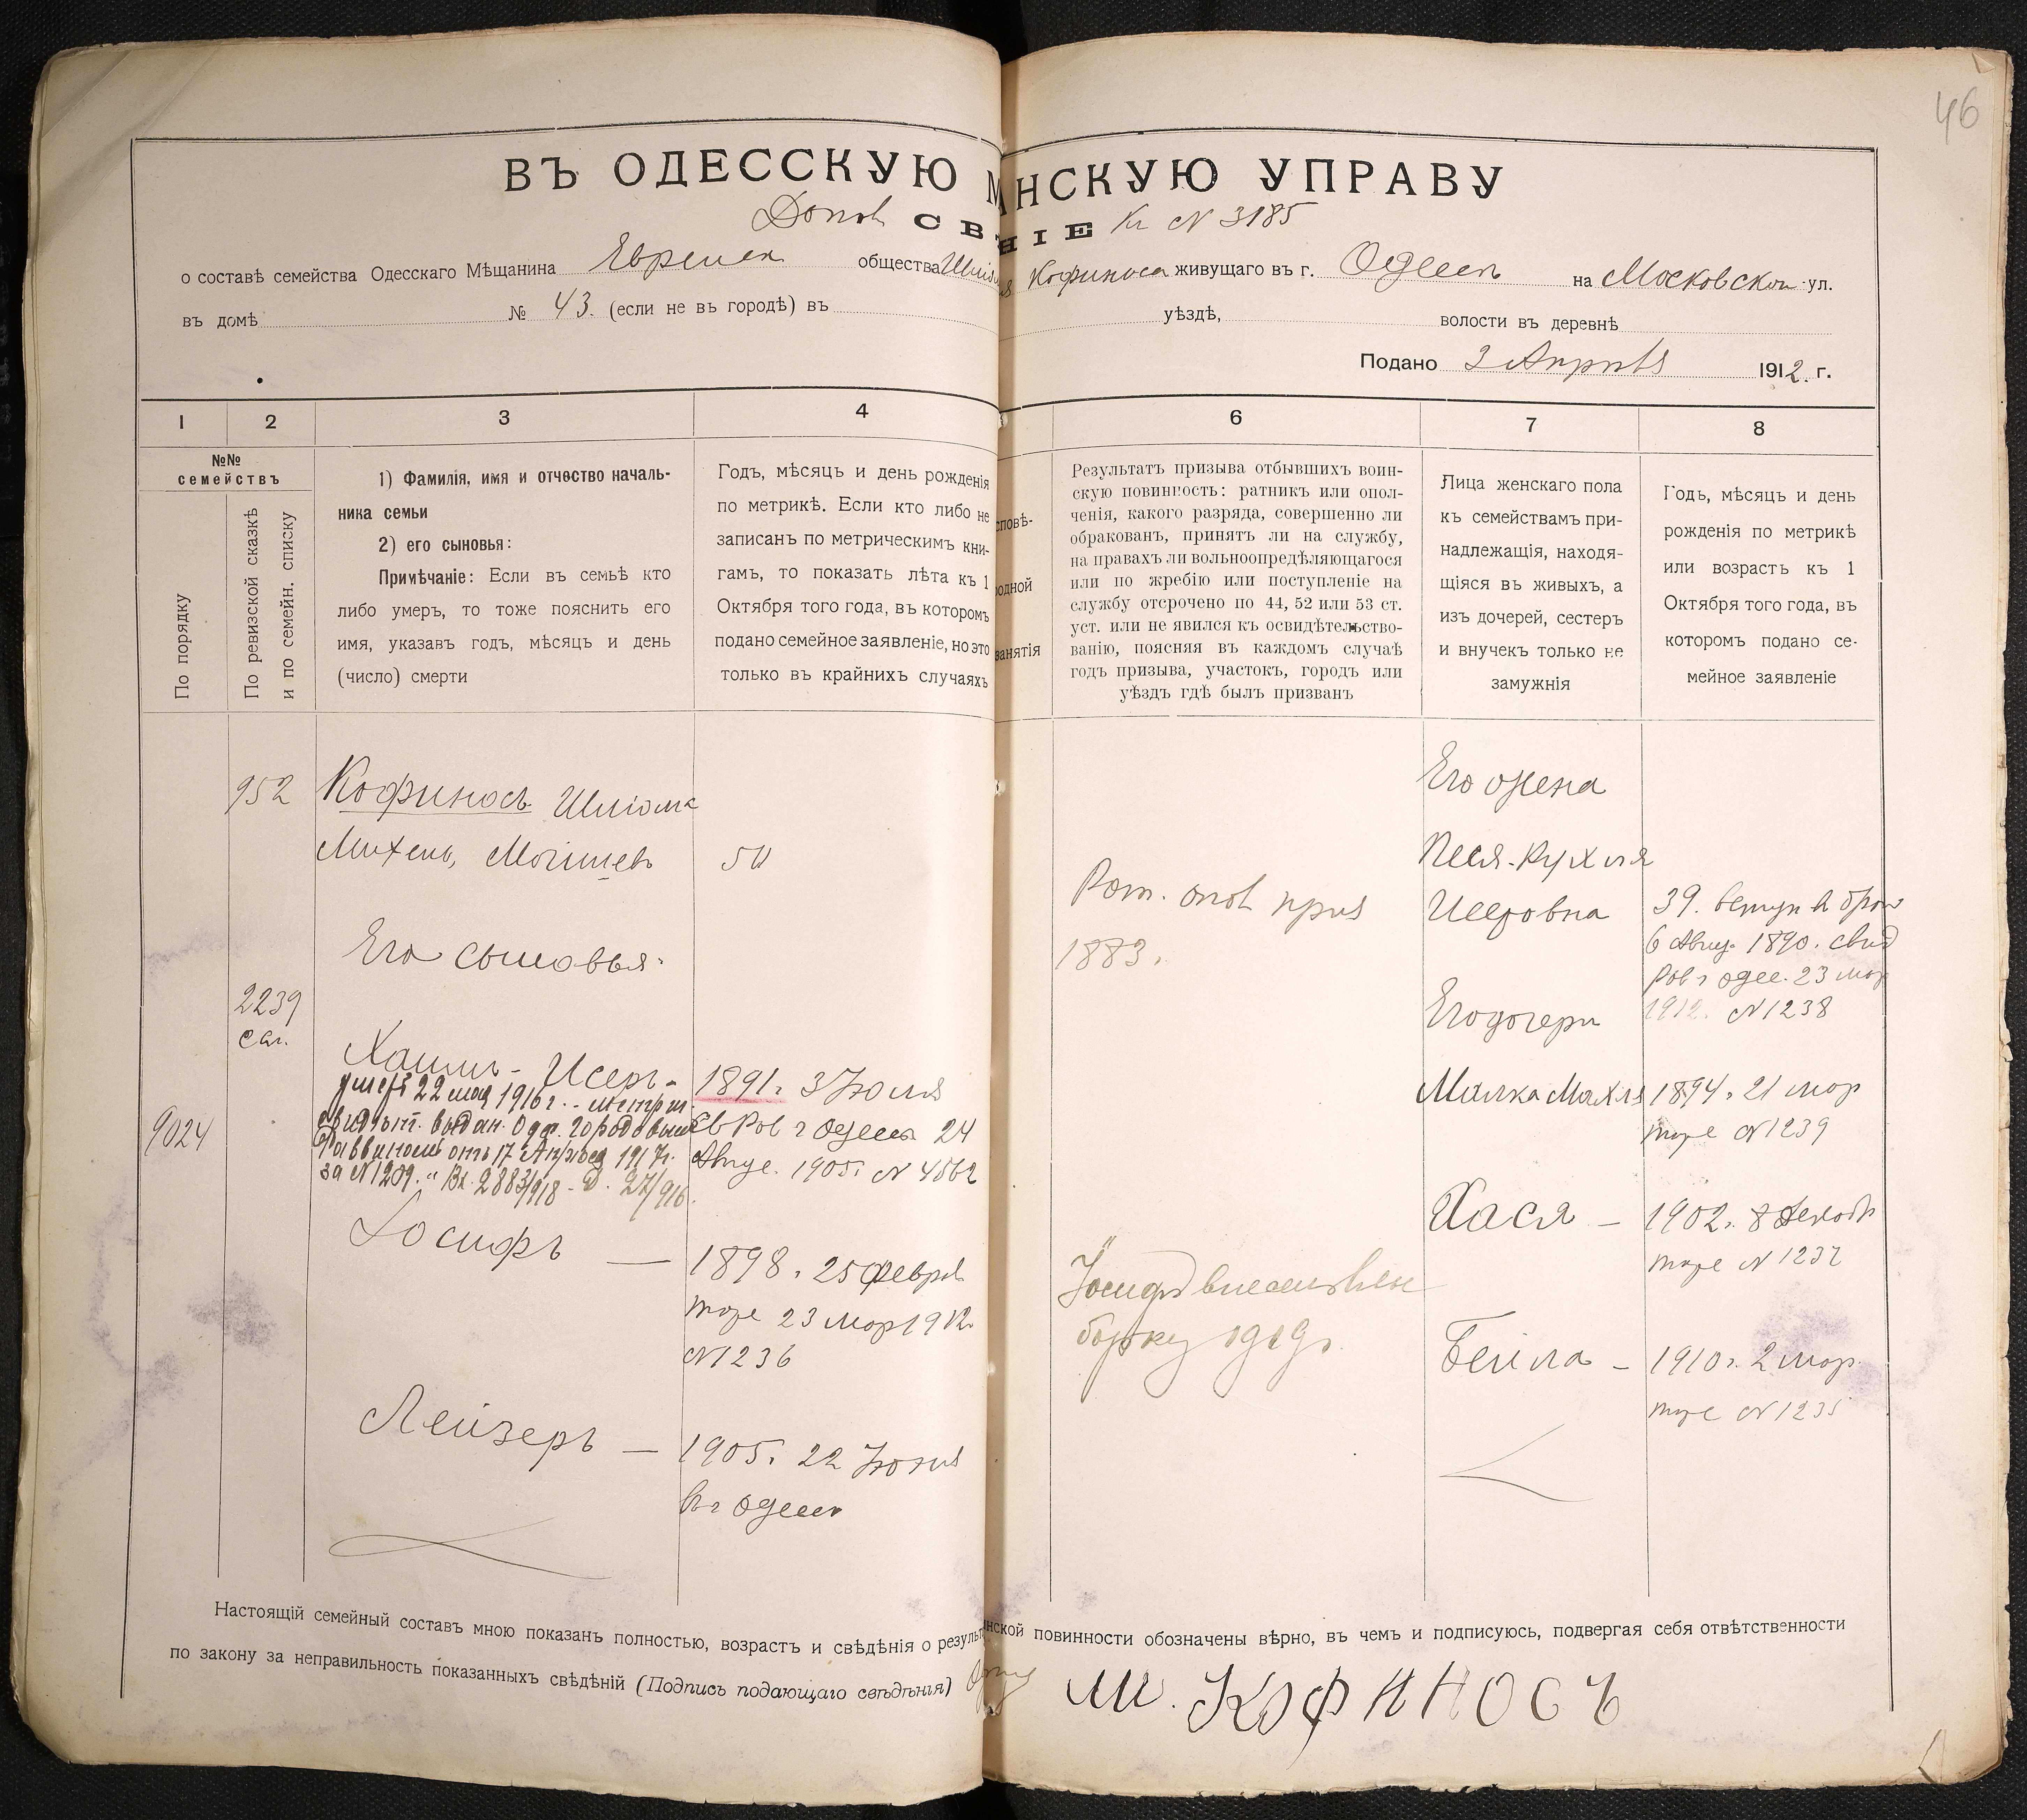 46
ВЪ ОДЕССКУЮ М НСКУЮ УПРАВУ
СВ НІЕ К N 3185
о составѣ семейства Одесскаго Мѣщанина общества Кофиноса живущаго въ г. Одессѣ на Московской ул.
въ домѣ № 43. (если не въ городѣ) въ уѣздѣ, волости въ деревнѣ
Подано 2 Апрѣля 1912. г.
1 2 3 4 6 7 8
№№
семействъ
По порядку
По ревизской сказкѣ
и по семейн. списку
1) Фамилія, имя и отчество началь-
ника семьи
2) его сыновья:
Примѣчаніе: Если въ семьѣ кто
либо умеръ, то тоже пояснить его
имя, указавъ годъ, мѣсяцъ и день
(число) смерти
Годъ, мѣсяцъ и день рожденія
по метрикѣ. Если кто либо не
записанъ по метрическимъ кни-
гамъ, то показать лѣта къ 1
Октября того года, въ которомъ
подано семейное заявленіе, но это
только въ крайнихъ случаяхъ
сповѣ-
одной
занятія
Результатъ призыва отбывшихъ воин-
скую повинность: ратникъ или опол-
ченія, какого разряда, совершенно ли
обракованъ, принятъ ли на службу,
на правахъ ли вольноопредѣляющагося
или по жребію или поступленіе на
службу отсрочено по 44, 52 или 53 ст.
уст. или не явился къ освидѣтельство-
ванію, поясняя въ каждомъ случаѣ
годъ призыва, участокъ, городъ или
уѣздъ гдѣ былъ призванъ
Лица женскаго пола
къ семействамъ при-
надлежащія, находя-
щіяся въ живыхъ, а
изъ дочерей, сестеръ
и внучекъ только не
замужнія
Годъ, мѣсяцъ и день
рожденія по метрикѣ
или возрастъ къ 1
Октября того года, въ
которомъ подано се-
мейное заявленіе
952 Кофиносъ Шліома
Михель, Мошковъ 50
Его сыновья:
2239
9024
Хаимъ-Исеръ- 1891г. 3 Юля
умеръ 22 мая 1916 г. - метрич.
свидѣт. выдан. Одес. Городовымъ
Раввиномъ отъ 17 Апрѣля 1917г.
за N 1209. Вх. 2883/918 - Д. 27/916.
Св Рав г Одессы 24
Авгус. 1905г N 4562
Іосифъ — 1898г. 25 Февраля
тоже 23 мар 1912
N 1236
Лейзеръ — 1905г. 22 Юня
въ г Одессѣ
Рат. опол приз
1883.
Іосифъ внесенъ въ вы
борку 1919г.
Его жена
Песя-Рухля
Исеровна 39. вступ въ брак
6 Авгус. 1890. свид
Рав г Одес. 23 мар
1912. N 1238
Его дочери
Малка Махля 1894г. 21 мар
тоже N 1239
Хася — 1902г. 8 Декабр
тоже N 1237
Бейла — 1910г. 2 мар.
тоже N 1235
Настоящій семейный составъ мною показанъ полностью, возрастъ и свѣдѣнія о результ нской повинности обозначены вѣрно, въ чемъ и подписуюсь, подвергая себя отвѣтственности
по закону за неправильность показанныхъ свѣдѣній (Подпись подающаго свѣдѣнія)
Ш. КОФИНОСЪ